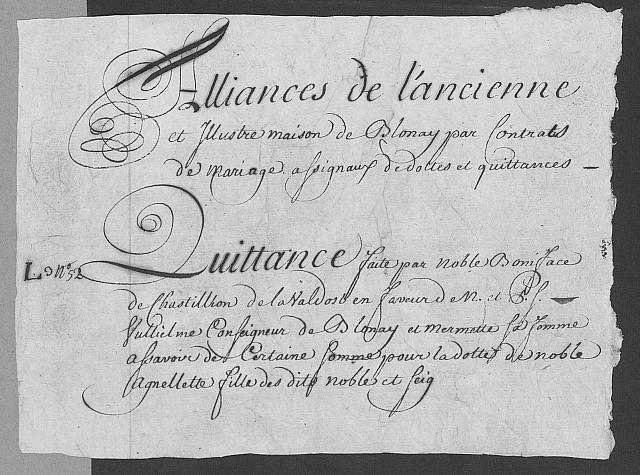 Alliances de l'ancienne
et Illustre maison de Blonay par Contrats
de Mariage assignaux de dottes et quittances
L. 9 N.º 52
Quittance faite par noble Boniface
de Chastillion de la Valdost en faveur de N. et P. S.
Vullielme Conseigneur de Blonay et Mermette sa femme
assavoir de Certaine somme pour la dotte de noble
Agnellette fille des dits noble et seig